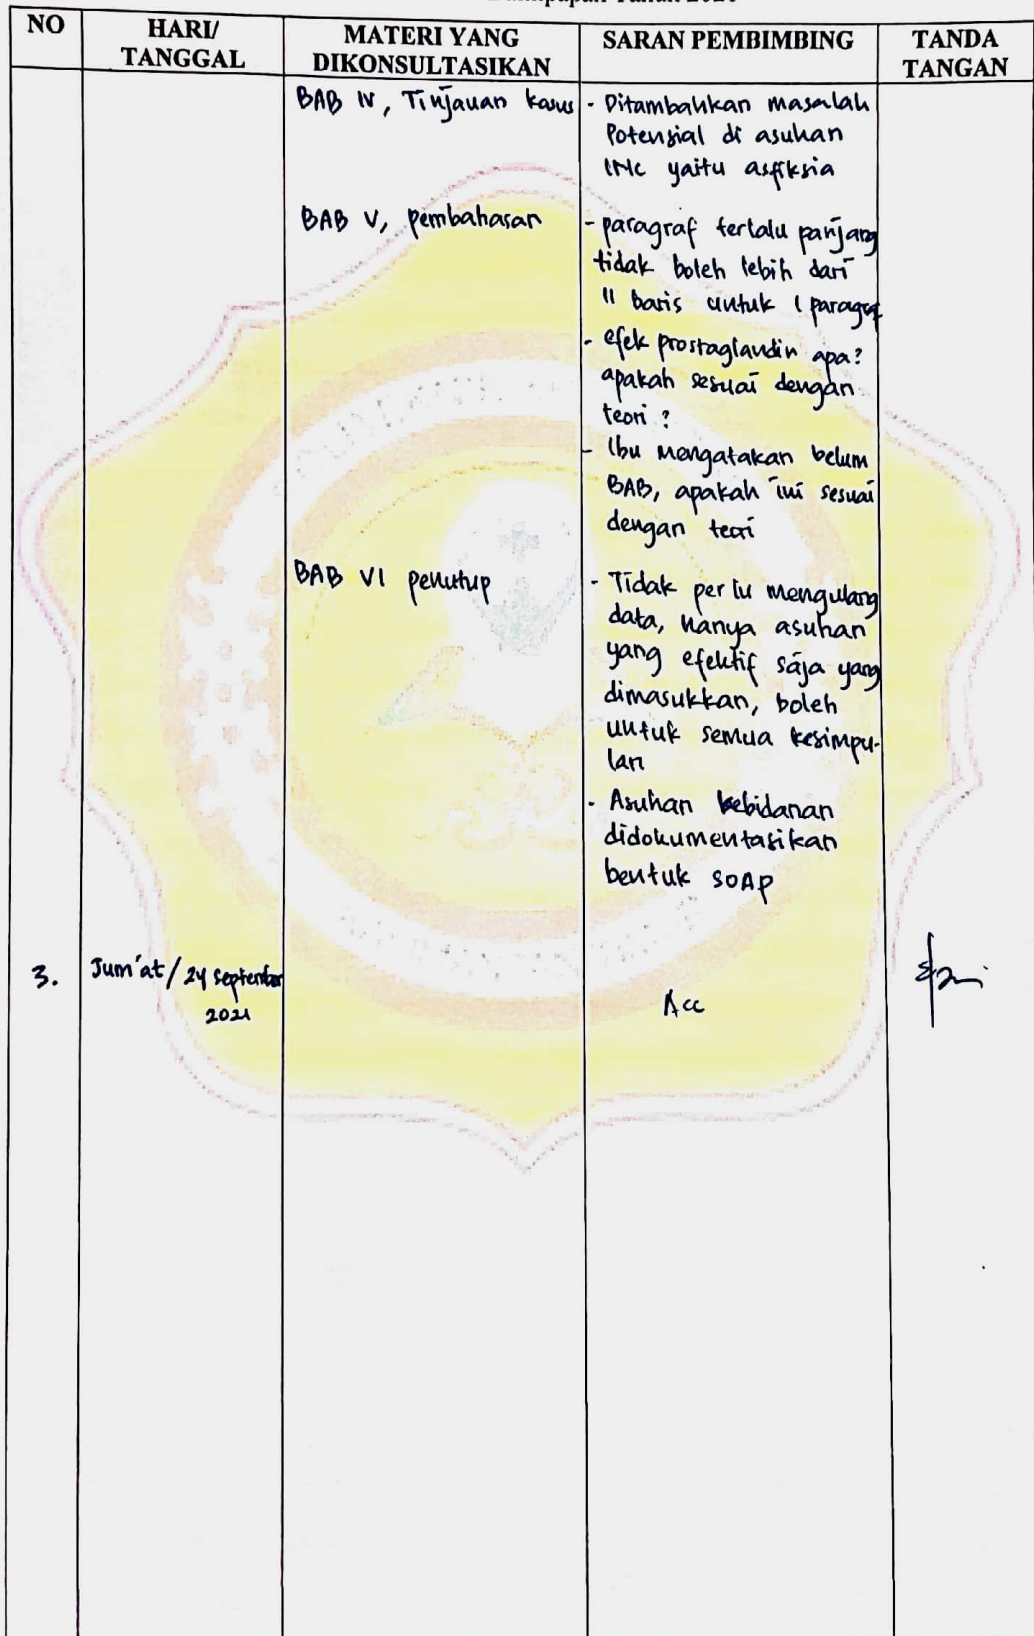 Tahun 2021
NO
HARI/
TANGGAL
MATERI YANG
DIKONSULTASIKAN
SARAN PEMBIMBING
TANDA
TANGAN
BAB IV, Tinjauan kasus
- Ditambahkan masalah
Potensial di asuhan
INC yaitu asfiksia
BAB V, pembahasan
- paragraf terlalu panjang
tidak boleh lebih dari
11 baris untuk 1 paragraf
- efek prostaglandin apa?
apakah sesuai dengan
teori ?
- Ibu mengatakan belum
BAB, apakah ini sesuai
dengan teori
BAB VI penutup
- Tidak perlu mengulang
data, hanya asuhan
yang efektif saja yang
dimasukkan, boleh
untuk semua kesimpu-
lan
- Asuhan kebidanan
didokumentasikan
bentuk SOAP
3.
Jum'at / 24 September
2021
Acc